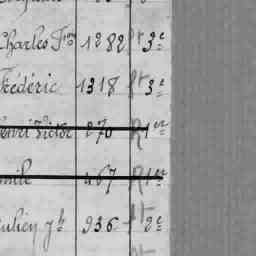 Charles Fois 1282 ft 3e
Frédéric 1318 ft 3e
Henri Victor 270 R 1er
mile 467 R 1er
Julien Jh 936 ft 2e